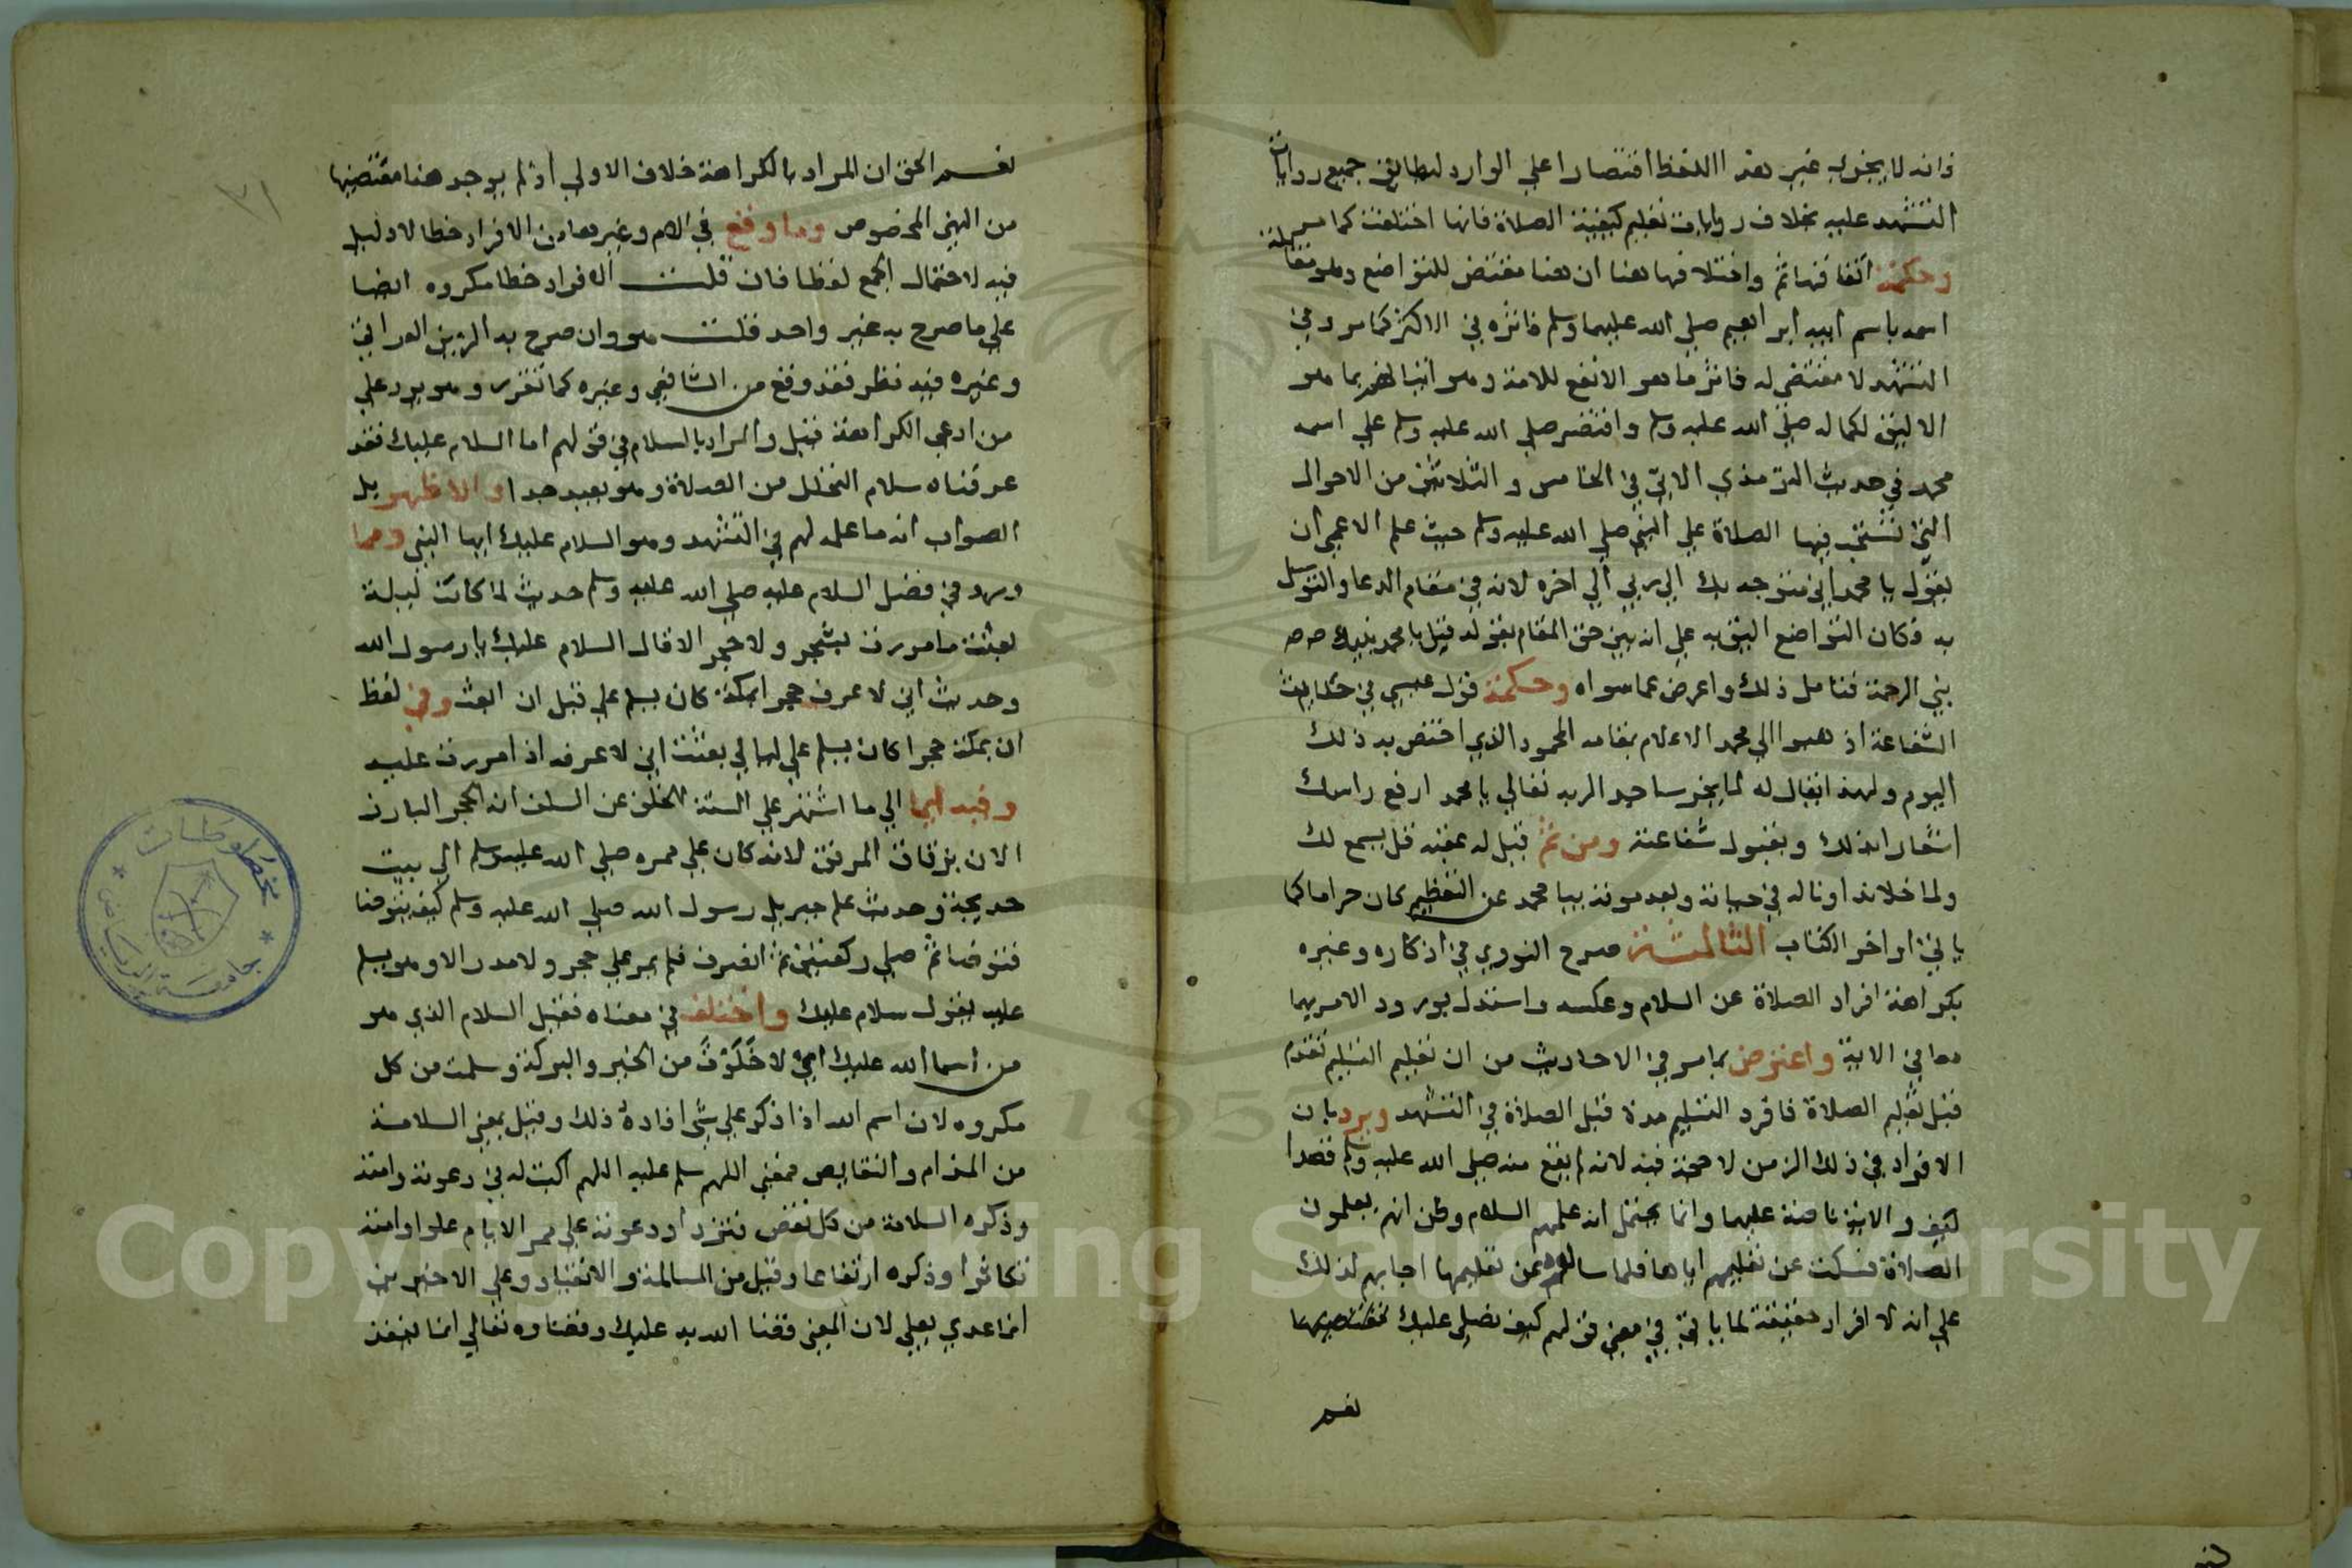 وانه لا يجزي غير هذا اللفظ اقتصارا علي الوارد لتطابق جميع روايات
التشهد عليه بخلاف روايات تعليم كيفية الصلاة فانها اختلفت كما مر
وحكمة اتفاقها ثم واختلافها هنا ان هنا مقتض للتواضع وهو مقابلة
اسمه باسم ابيه ابراهيم صلي الله عليهما وسلم فاثره في الاكثر كما مر وفي
التشهد لا مقتضي له فاثر ما هو الانفع للامة وهو اتيانهم بما هو
الاليق لكماله صلي الله عليه وسلم واقتصر صلي الله عليه وسلم علي اسمه
محمد في حديث الترمذي الاتي في الخامس والثلاثين من الاحوال
التي تستحب فيها الصلاة علي النبي صلي الله عليه وسلم حيث علم الاعمي ان
يقول يا محمد اني متوجه بك الي ربي الي اخره لانه في مقام الدعا والتوسل
به فكان التواضع اليق به علي انه بين حق المقام بقوله قبل يا محمد بنبيك محمد
نبي الرحمة فتامل ذلك واعرض عما سواه وحكمة قول عيسي في حديث
الشفاعة اذهبوا الي محمد الاعلام بمقامه المحمود الذي اختص به ذلك
اليوم ولهذا يقال له لما يخر ساجدا لربه تعالي يا محمد ارفع راسك
اشعارا بذلك وبقبول شفاعته ومن ثم قيل له عقبه قل يسمع لك
ولما خلا نداوناله في حياته وبعد موته بيا محمد عن التعظيم كان حراما كما
ياتي اواخر الكتاب الثالثة صرح النووي في اذكاره وغيره
بكراهة افراد الصلاة عن السلام وعكسه واستدل بورود الامر بهما
معا في الاية واعترض بما مر في الاحاديث من ان تعليم التسليم تقدم
قبل تعليم الصلاة فافرد التسليم مدة قبل الصلاة في التشهد ويرد بان
الافراد في ذلك الزمن لا حجة فيه لانه لم يقع منه صلي الله عليه وسلم قصدا
كيف والاية ناصة عليهما وانما يحتمل انه علمهم السلام وظن انهم يعلمون
الصلاة فسكت عن تعليمهم اياها فلما سالوه عن تعليمها اجابهم لذلك
علي انه لا افراد حقيقة لما ياتي في معني قولهم كيف نصلي عليك
نعم
نعم الحق ان المراد بالكراهة خلاف الاولي اذ لم يوجد هنا مقتضيها
من النهي المخصوص وما وقع في الام وغيرها من الافراد خطا لا دليل
فيه لاحتمال الجمع لفظا فان قلت الافراد خطا مكروه ايضا
علي ما صرح به غير واحد قلت هو وان صرح به الزين العراقي
وغيره فيه نظر فقد وقع من الشافعي وغيره كما تقرر وهو يرد علي
من ادعي الكراهة قيل والمراد بالسلام في قولهم اما السلام عليك فقد
عرفناه سلام التحلل من الصلاة وهو بعيد جدا والاظهر بل
الصواب انه ما علمه لهم في التشهد وهو السلام عليك ايها النبي ومما
ورد في فضل السلام عليه صلي الله عليه وسلم حديث لما كانت ليلة
بعثت ما مررت بشجر ولا حجر الا قال السلام عليك يا رسول الله
وحديث اني لا عرف حجرا بمكة كان يسلم علي قبل ان ابعث وفي لفظ
ان بمكة حجرا كان يسلم علي ليالي بعثت اني لا عرفه اذا مررت عليه
وفيه ايما الي ما اشتهر علي السنة الخلف عن السلف انه الحجر البارز
الان بزقاق المرفق لانه كان علي ممره صلي الله عليه وسلم الي بيت
خديجة وحديث علم جبريل رسول الله صلي الله عليه وسلم كيف يتوضا
فتوضا ثم صلي ركعتين ثم انصرف فلم يمر علي حجر ولا مدر الا وهو يسلم
عليه يقول سلام عليك واختلف في معناه فقيل السلام الذي هو
من اسما الله عليك اي لا خلوت من الخير والبركة وسلمت من كل
مكروه لان اسم الله اذا ذكر علي شي افاده ذلك وقيل بمعني السلامة
من المذام والنقايص فمعني اللهم سلم عليه اللهم اكتب له في دعوته وامته
وذكره السلامة من كل نقص فتزداد دعوته علي ممر الايام علوا وامته
تكاثرا وذكره ارتفاعا وقيل من المسالمة والانقياد وعلي الاخيرين
انما عدي بعلي لان المعني قضا الله به عليك وقضاوه تعالي انما ينفذ